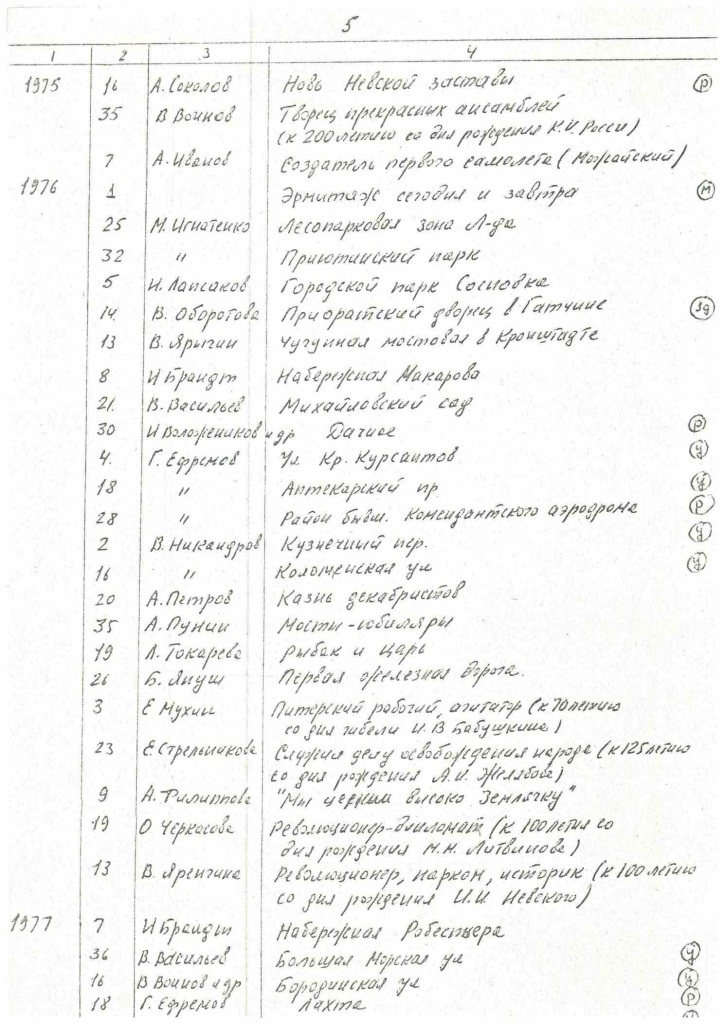 5
1 2 3 4
1975 16 А. Соколов Новь Невской заставы р
35 В Воинов Творец прекрасных ансамблей
(к 200летию со дня рождения К.И. Росси)
7 А. Иванов Создатель первого самолета (Можайский)
1976 1 Эрмитаж сегодня и завтра м
25 М. Игнатенко Лесопарковая зона Л-да
32 " Приютинский парк
5 И. Лапсаков Городской парк Сосновка
14. В. Оборотова Приоратский дворец в Гатчине зд
13 В. Ярыгин Чугунная мостовая в Кронштадте
8 И Брандт Набережная Макарова
21. В. Васильев Михайловский сад
30 И Воложенинов и др Дачное р
4. Г. Ефремов Ул Кр. Курсантов у
18 " Аптекарский пр у
28 " Район бывш. Комендантского аэродрома р
2 В. Никандров Кузнечный пер. у
16 " Коломенская ул у
20 А. Петров Казнь декабристов
35 А. Пунин Мосты-юбиляры
19 Л. Токарева Рыбак и царь
26 Б. Януш Первая железная дорога.
3 Е Мухин Питерский рабочий, агитатор (к 70летию
со дня гибели И.В Бабушкина)
23 Е. Стрельникова Служил делу освобождения народа (к 125летию
со дня рождения А.И. Желябова)
9 А. Филиппова "Мы ценим высоко Землячку"
19 О Черкасова Революционер-дипломат (к 100летия со
дня рождения М.М. Литвинова)
13 В. Яренгина Революционер, нарком, историк (к 100летию
со дня рождения И.И Невского)
1977 7 И Брандт Набережная Робеспьера
36 В. Васильев Большая Морская ул у
16 В Воинов и др Бородинская ул у
18 Г. Ефремов Лахта р